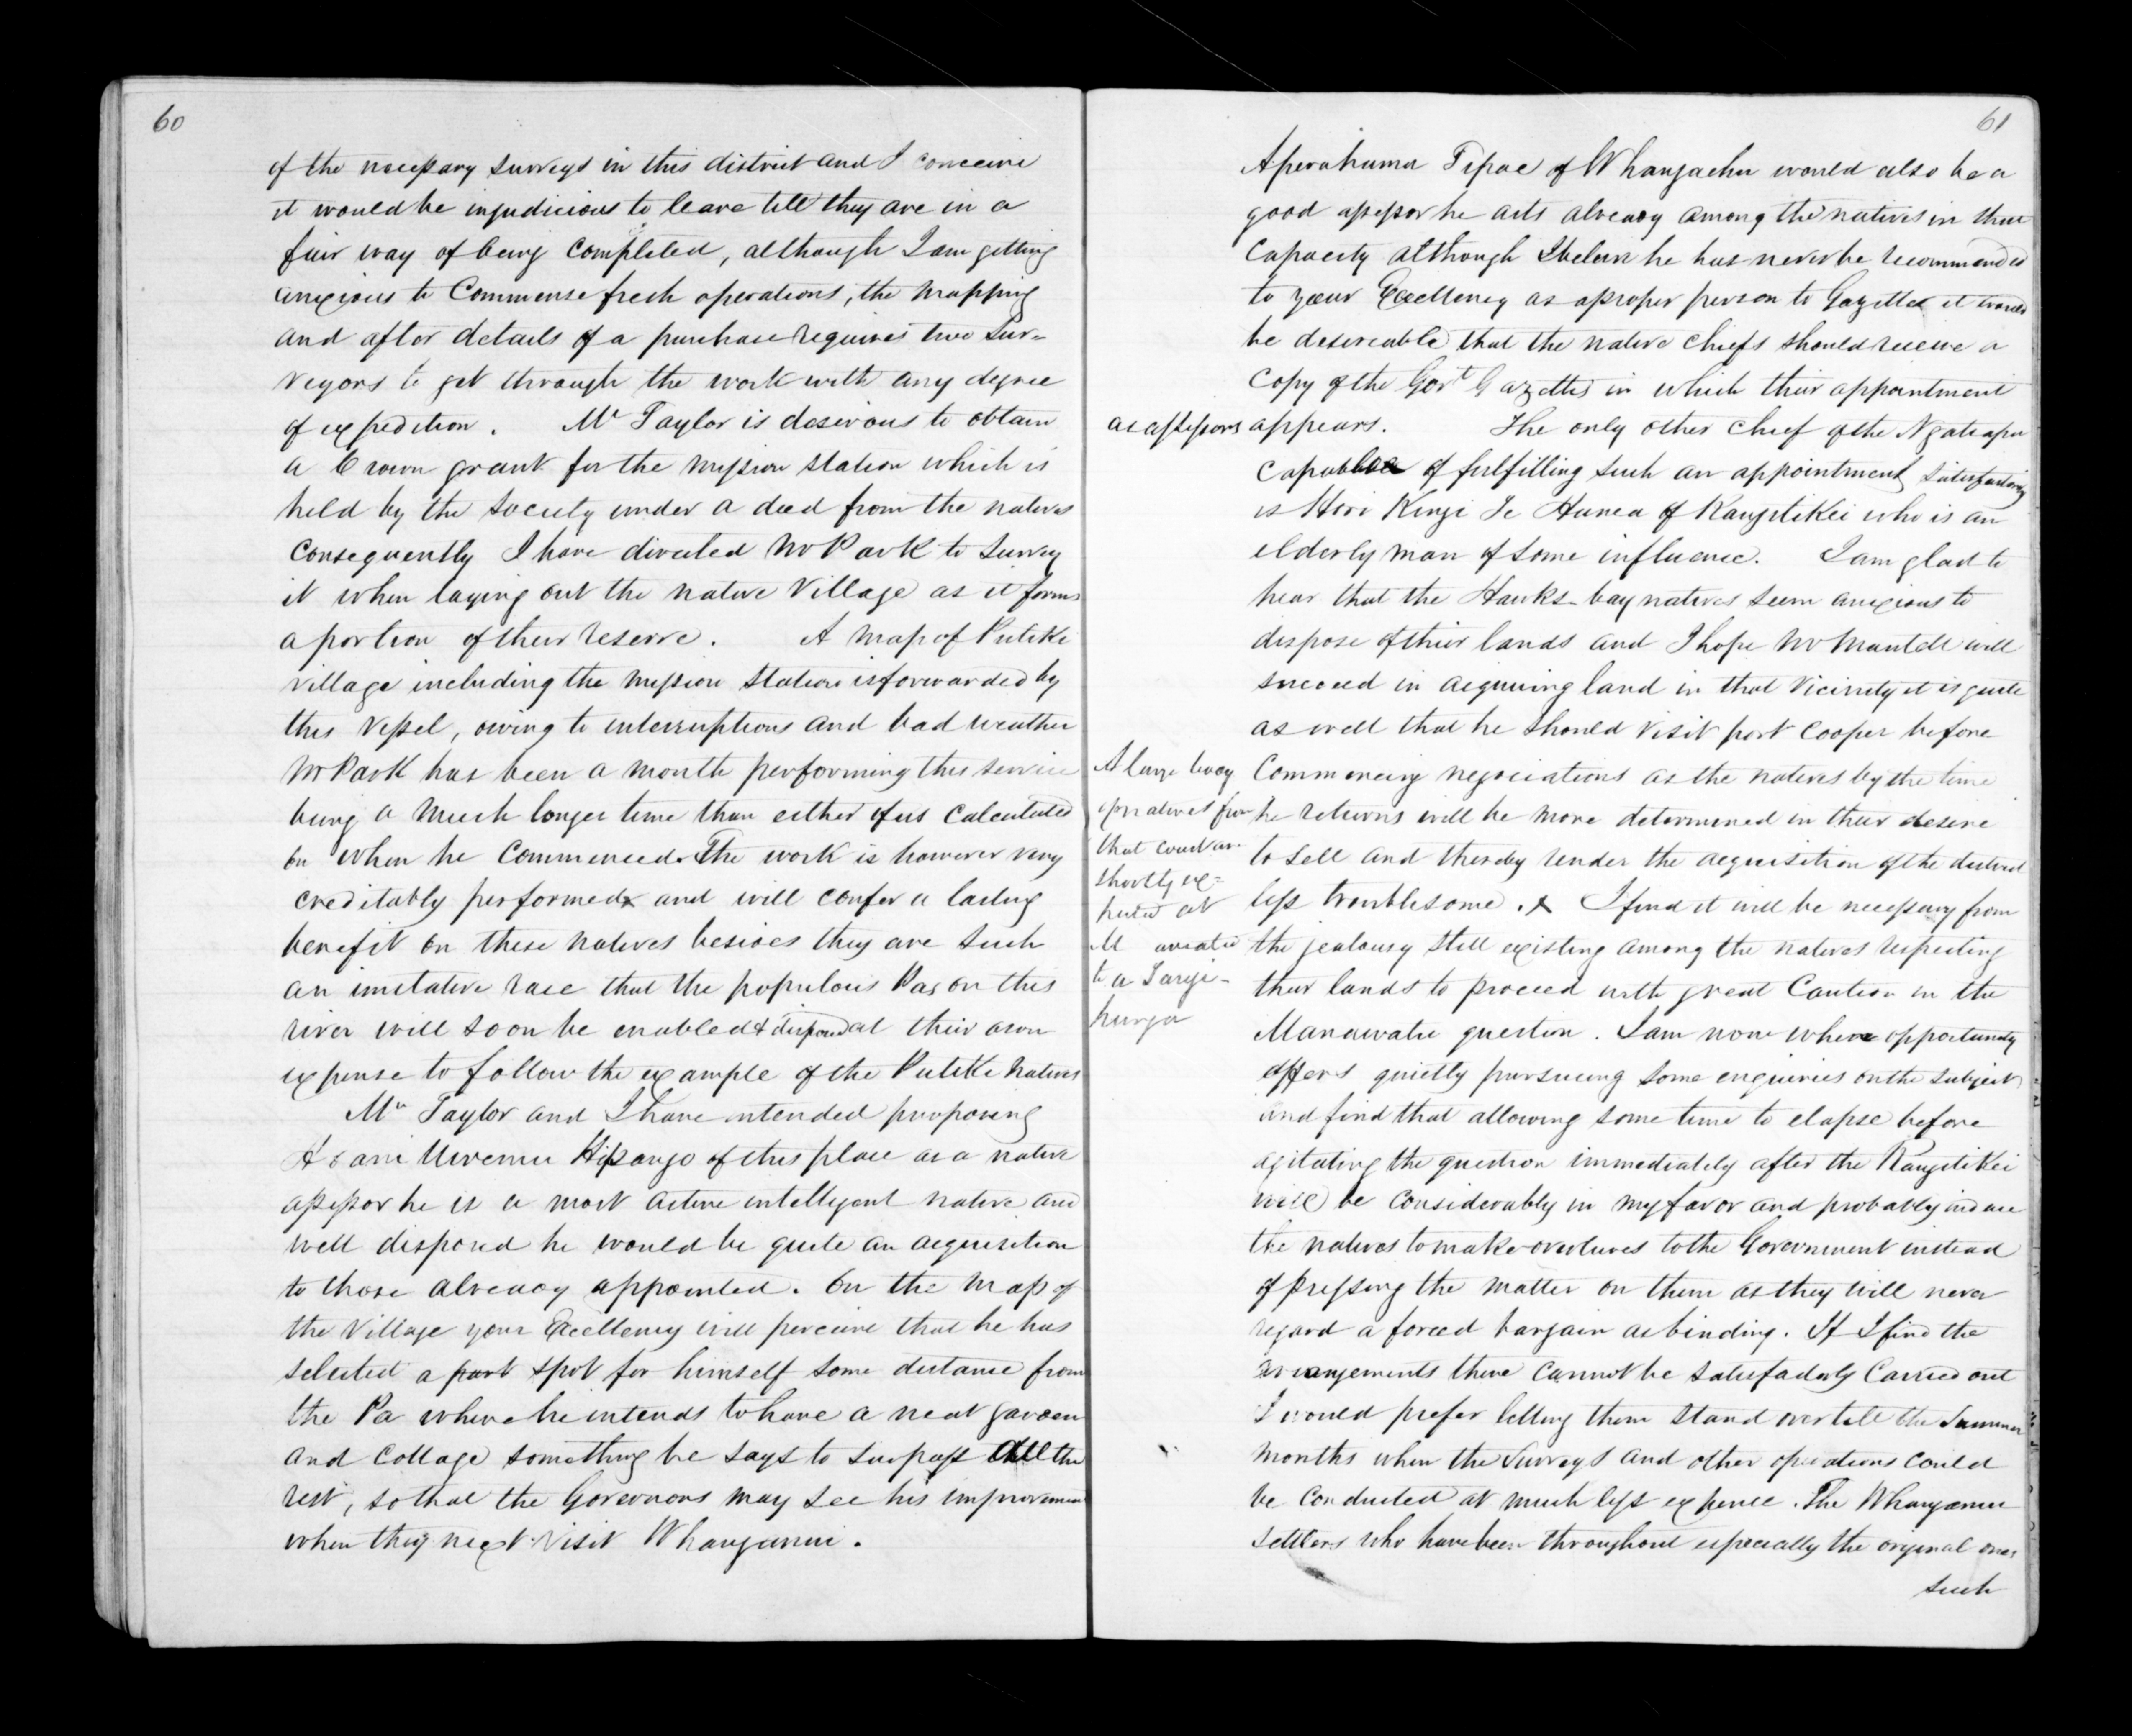 60
of the necessary surveys in this district and I conceive
it would be injudicious to leave till they are in a
fair way of being completed, although I am getting
anxious to Commense fresh operations, the mapping
and after details of a purchase requires two Sur=
veyors to get through the work with any degree
of expedition. Mr Taylor is desirous to obtain
a Crown grant for the mission station which is
held by the Society under a deed from the natives
Consequently I have directed Mr Park to survey
it when laying out the native Village as it forms
a portion of their reserve. A map of Putiki
village including the mission station is forwarded by
this vessel, owing to interruptions and bad weather
Mr Park has been a month performing this service
being a much longer time than either of us calculated
on when he Commenced. The work is however very
creditably performed and will confer a lasting
benefit on these natives besides they are such
an imitative race that the populous Pas on this
river will soon be enabled & disposed at their own
expense to follow the example of the Putiki natives
Mr Taylor and I have intended proposing
Hoani Wiremu Hipango of this place as a native
assessor he is a most active intelligent native and
well disposed he would be quite an acquisition
to those already appointed. On the map of
the Village your Excellency will perceive that he has
selected a part spot for himself some distance from
the Pa where he intends to have a neat garden
and Cottage something he says to surpass all the
rest, so that the Governors may see his improvement
when they next visit Whanganui.
61
Aperahama Tipae of Whangaehu would also be a
good assessor he acts already among the natives in that
Capacity although I believe he has never be recommended
to your Excellency as a proper person to Gazette it would
be desireable that the native chiefs should receive a
Copy of the Govt Gazettes in which their appointment
as assessors appears. The only other chief of the Ngatiapa
capable of fulfilling such an appointment satisfactorily
is Hori Kingi Te Hanea of Rangitikei who is an
elderly man of some influence. I am glad to
hear that the Hawks-bay natives seem anxious to
dispose of their lands and I hope Mr Mantell will
succeed in acquiring land in that vicinity it is quite
as well that he should visit port Cooper before
Commencing negociations as the natives by the time
he returns will be more determined in their desire
to sell and thereby render the acquisition of the district
less troublesome. x I find it will be necessary from
the jealousy still existing among the natives respecting
their lands to proceed with great Caution in the
Manawatu question. I am now where opportunity
offers quietly pursueing some enquiries on the subject
and find that allowing some time to elapse before
agitating the question immediately after the Rangitikei
will be considerably in my favor and probably induce
the natives to make overtures to the Government instead
of pressing the matter on them as they will never
regard a forced bargain as binding. If I find the
arrangements there cannot be satisfactorily Carried out
I would prefer letting them stand over till the Summer
months when the Surveys and other operations could
be conducted at much less expence. The Whanganui
settlers who have been throughout especially the original ones
such
A large body
of natives from
that coast are
shortly ex=
pected at
Manawatu
to a Tangi-
hanga